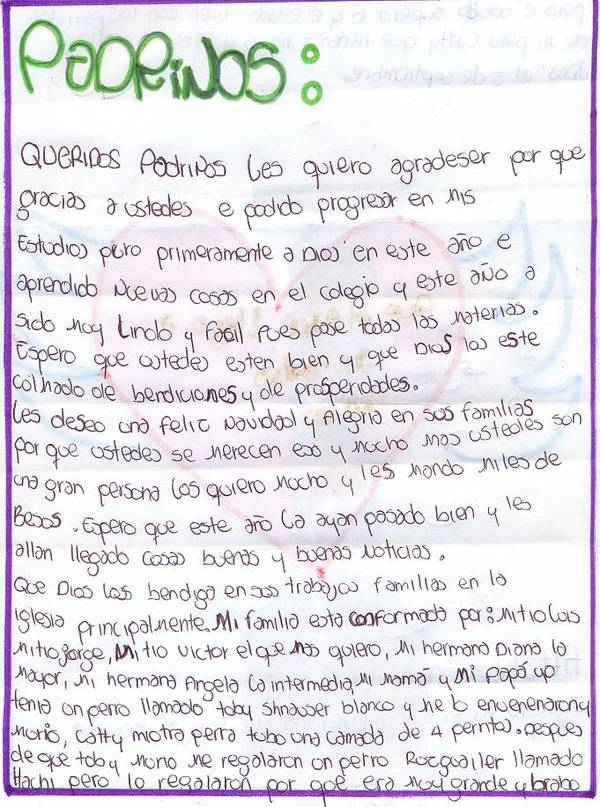 PADRINOS:
QUERIDOS Padrinos les quiero agradeser por que
gracias a ustedes e podido progresar en mis
Estudios pero primeramente a Dios en este año e
aprendido Nuevas cosas en el colegio y este año a
sido muy Lindo y Facil pues pase todas las materias.
Espero que ustedes esten bien y que Dios los este
colmado de bendiciones y de prosperidades.
Les deseo una feliz Navidad y Alegria en sus familias
por que ustedes se merecen eso y mucho mas ustedes son
una gran persona los quiero mucho y les mando miles de
Besos. Espero que este año la ayan pasado bien y les
allan llegado cosas buenas y buenas Noticias.
Que Dios los bendiga en sus trabajos familias en la
iglesia principalmente. Mi familia esta conformada por: mi tio Luis
mi tio jorge, Mi tio Victor el que mas quiero, mi hermana Diana la
mayor, mi hermana Angela la intermedia, mi mamá y Mi papá yo
tenia un perro llamado toby shnauser blanco y me lo envenenaron y
murio, Catty mi otra perra tubo una camada de 4 perritos. Despues
de que toby murio me regalaron un perro Rocguailer llamado
Hachi pero lo regalaron por que era muy grande y brabo